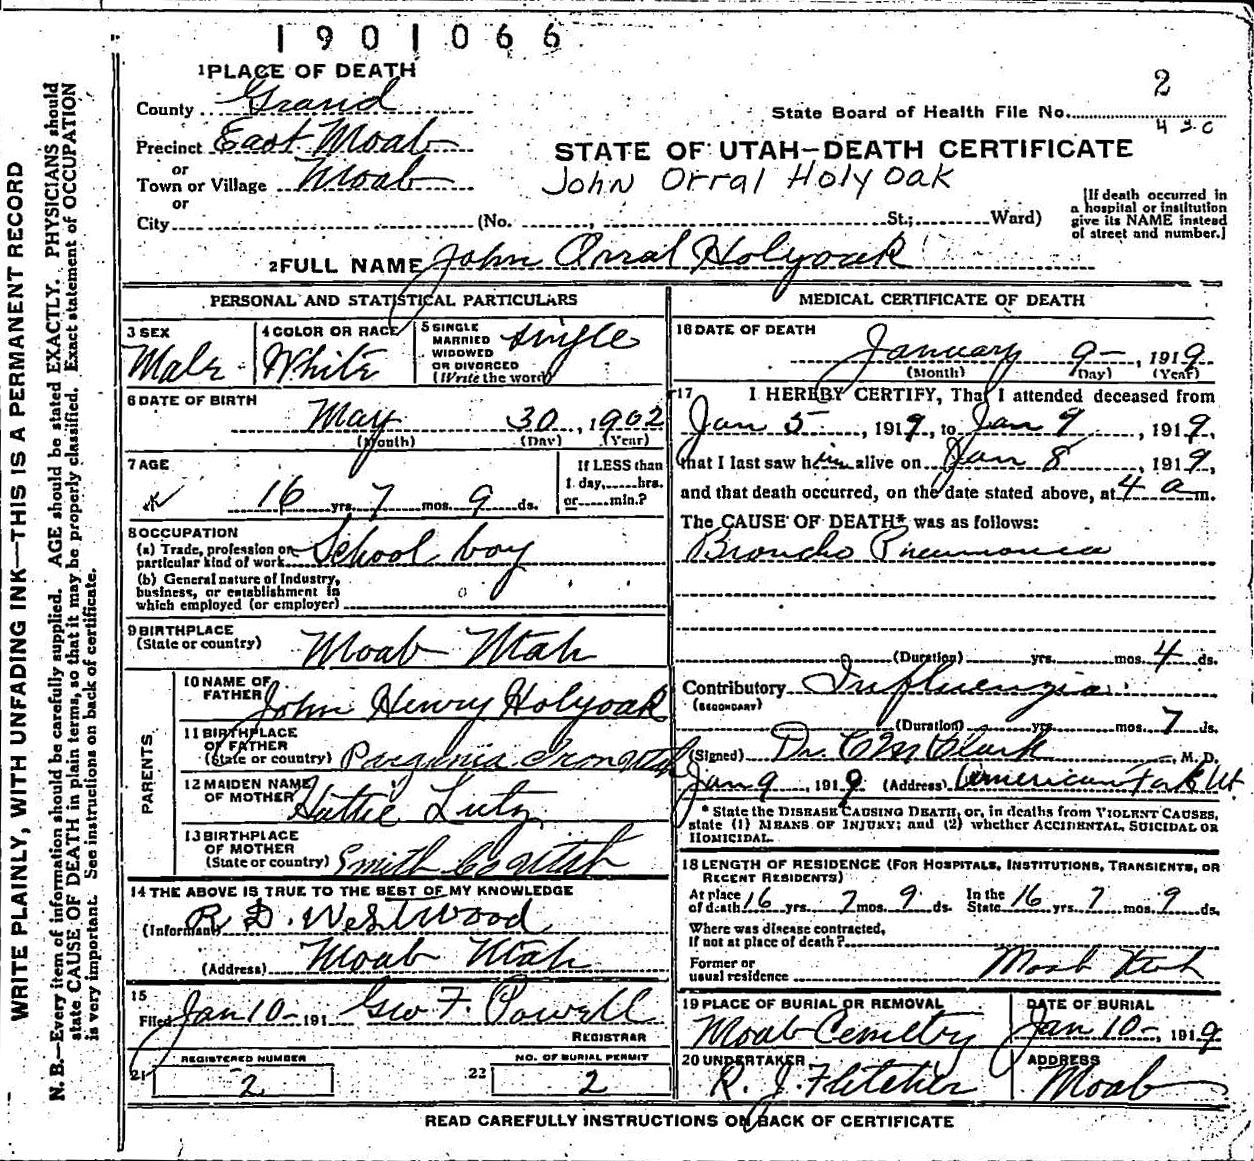 1901066
1 PLACE OF DEATH
County Grand
2
State Board of Health File No.
430
Precinct East Moab
or
Town or Village Moab
or
City (No. , St.; Ward)
STATE OF UTAH—DEATH CERTIFICATE
John Orral Holyoak
[If death occurred in
a hospital or institution
give its NAME instead
of street and number.]
2 FULL NAME John Orral Holyoak
PERSONAL AND STATISTICAL PARTICULARS
3 SEX
Male
4 COLOR OR RACE
White
5 SINGLE
MARRIED
WIDOWED
OR DIVORCED
(Write the word)
single
6 DATE OF BIRTH
May 30, 1902
(Month) (Day) (Year)
7 AGE
16 yrs. 7 mos. 9 ds.
If LESS than
1 day, hrs.
or min.?
8 OCCUPATION
(a) Trade, profession or
particular kind of work School boy
(b) General nature of Industry,
business, or establishment in
which employed (or employer)
9 BIRTHPLACE
(State or country) Moab Utah
PARENTS
10 NAME OF
FATHER John Henry Holyoak
11 BIRTHPLACE
OF FATHER
(State or country) Paragonia Iron Utah
12 MAIDEN NAME
OF MOTHER Hattie Lutz
13 BIRTHPLACE
OF MOTHER
(State or country) Smith Co Utah
14 THE ABOVE IS TRUE TO THE BEST OF MY KNOWLEDGE
(Informant) R D. Westwood
(Address) Moab Utah
15
Filed Jan 10- 191 Geo F. Powell
REGISTRAR
REGISTERED NUMBER
21 2
NO. OF BURIAL PERMIT
22 2
MEDICAL CERTIFICATE OF DEATH
16 DATE OF DEATH
January 9-, 1919
(Month) (Day) (Year)
17 I HEREBY CERTIFY, That I attended deceased from
Jan 5, 1919, to Jan 9, 1919,
that I last saw him alive on Jan 8, 1919,
and that death occurred, on the date stated above, at 4 a m.
The CAUSE OF DEATH* was as follows:
Broncho Pneumonia
(Duration) yrs. mos. 4 ds.
Contributory Influenzia
(SECONDARY)
(Duration) yrs. mos. 7 ds.
(Signed) Dr. C M Clark, M. D.
Jan 9, 1919 (Address) American Fork Ut.
* State the DISEASE CAUSING DEATH, or, in deaths from VIOLENT CAUSES,
state (1) MEANS OF INJURY; and (2) whether ACCIDENTAL, SUICIDAL OR
HOMICIDAL.
18 LENGTH OF RESIDENCE (FOR HOSPITALS, INSTITUTIONS, TRANSIENTS, OR
RECENT RESIDENTS)
At place
of death 16 yrs. 7 mos. 9 ds.
In the
State 16 yrs. 7 mos. 9 ds.
Where was disease contracted,
if not at place of death?
Former or
usual residence Moab Utah
19 PLACE OF BURIAL OR REMOVAL
Moab Cemetry
DATE OF BURIAL
Jan 10-, 1919
20 UNDERTAKER
R. J. Fletcher
ADDRESS
Moab
READ CAREFULLY INSTRUCTIONS ON BACK OF CERTIFICATE
WRITE PLAINLY, WITH UNFADING INK—THIS IS A PERMANENT RECORD
N. B.—Every item of information should be carefully supplied. AGE should be stated EXACTLY. PHYSICIANS should
state CAUSE OF DEATH in plain terms, so that it may be properly classified. Exact statement of OCCUPATION
is very important. See instructions on back of certificate.